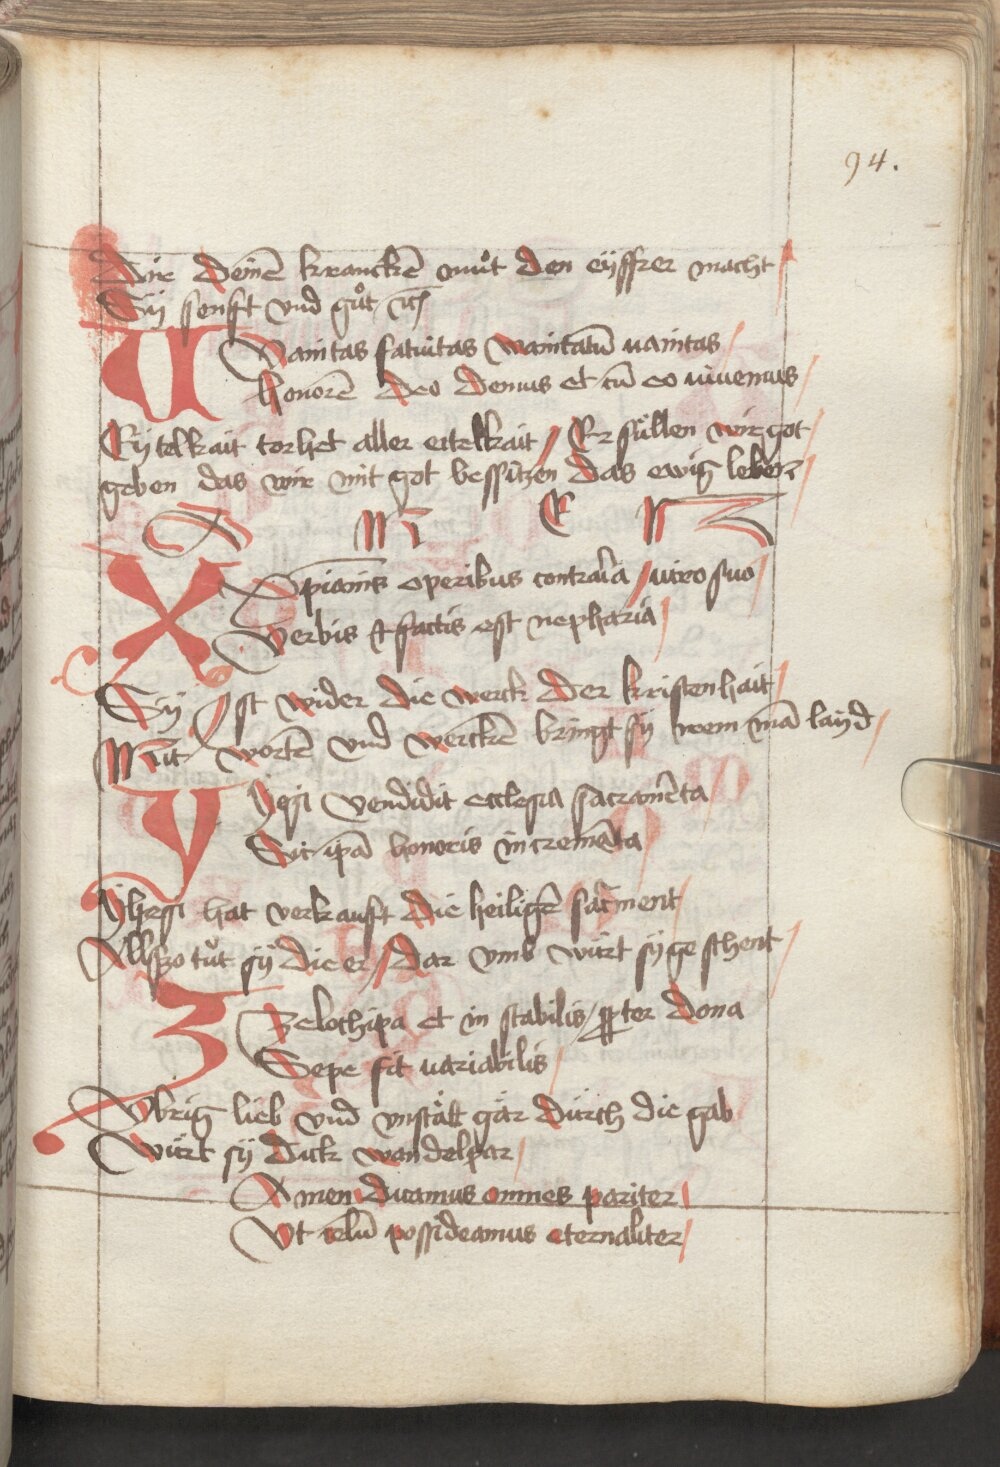 94.
Dir deinē kranckē mu̍t den eyffrer macht
Sy senft vnd gůt ꝛcꝭ
V Vanitas fatuitas vanitatū uanitas
honorē deo demus et cū eo viuemus
Eytelkait torhet aller eitelkait Er süllen wir got
geben das wir mit got bessitzen das ewig leben
A M E N
X Xpianis operibus contraria uiro suo
Verbis et factis est nepharia
Sy Ist wider die werck der kristenhait
Mit wortē vnd werckē bringt sy irem mā layd
Y Yesi vendidit ecclesia sacramēta
Sic ipā honoris incremēta
Yhesi hat verkauft die heiligē sacrment
Allszo tůt sy die er dar vmb würt sy geschent
Z Zelothipa et in stabilis ꝓpter dona
Sepe fit uariabilis
Vbrig lieb vnd vnstät gar durch die gab
Würt sy dick wandelpar
Amen dicamus omnes pariter
Vt celū possideamus eternaliter